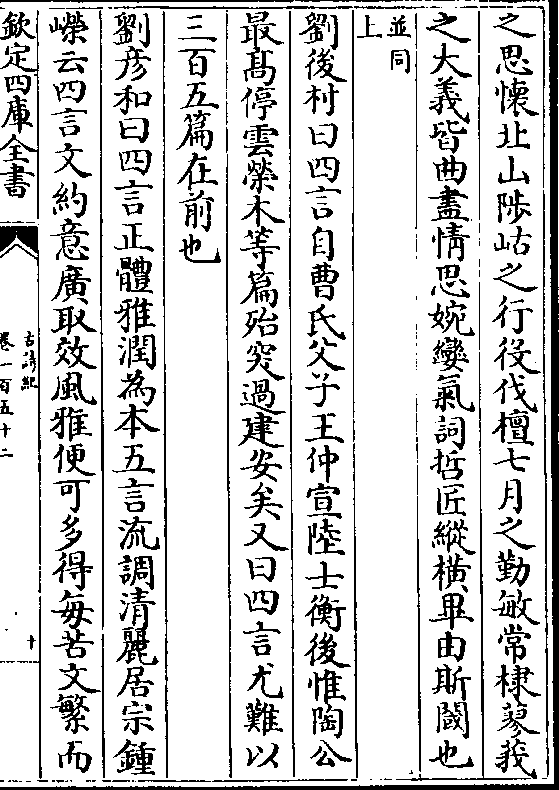 之思懷北山陟岵之行役伐檀七月之勤敏常棣蓼莪
之大義皆曲盡情思婉孌氣詞哲匠縱横畢由斯閾也
並同
上
劉後村曰四言自曹氏父子王仲宣陸士衡後惟陶公
最髙停雲榮木等篇殆突過建安矣又曰四言尤難以
三百五篇在前也
劉彦和曰四言正體雅潤為本五言流調清麗居宗鍾
嶸云四言文約意廣取效風雅便可多得每苦文繁而
欽定四庫全書
古詩紀
卷一百五十二
十